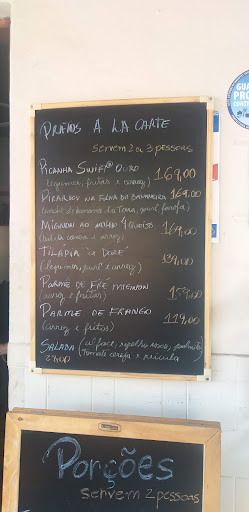 PRATOS A LA CARTE
servem 2 a 3 pessoas
PICANHA SWIFT OURO 169,00
(legumes, fritas e arroz)
PIRARUCU NA FOLHA DA BANANEIRA 169,00
banana da terra, farofa)
MIGNON AO MOLHO 4 QUEIJOS 169,00
(batata e arroz)
TILÁPIA "a DORÊ" 139,00
(legumes, purê e arroz)
PARME DE FILÉ MIGNON
(arroz e fritas)
PARME DE FRANGO 119,00
(arroz e fritas)
SALADA (alface, repolho roxo, palmito
tomate cereja e rúcula)
Porções
servem 2 pessoas